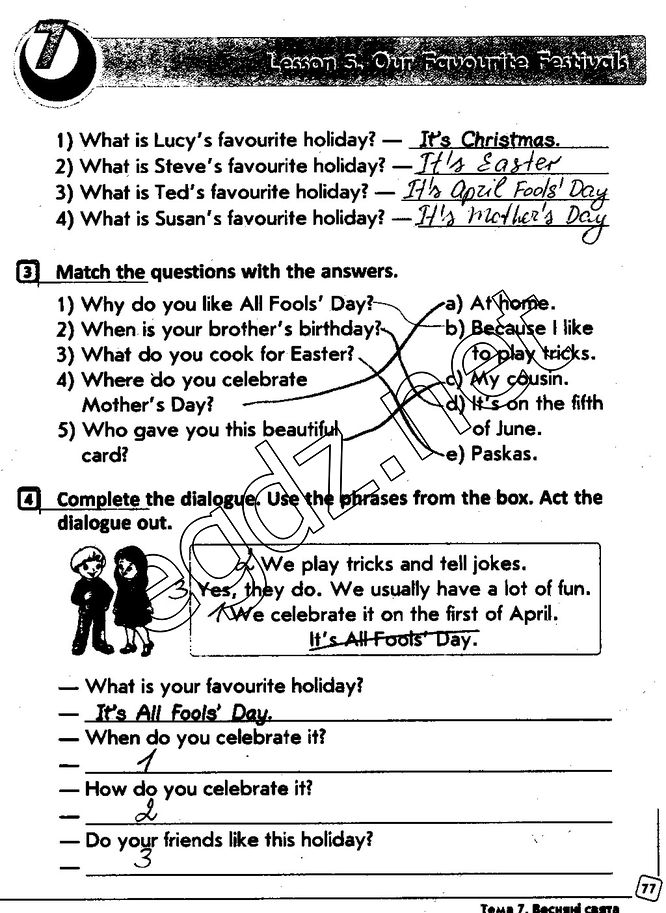 7
Lesson 5. Our Favourite Festivals
1) What is Lucy's favourite holiday? — It's Christmas.
2) What is Steve's favourite holiday? — It's Easter
3) What is Ted's favourite holiday? — It's April Fools' Day
4) What is Susan's favourite holiday? — It's Mother's Day
3 Match the questions with the answers.
1) Why do you like All Fools' Day? a) At home.
2) When is your brother's birthday? b) Because I like
3) What do you cook for Easter? to play tricks.
4) Where do you celebrate c) My cousin.
Mother's Day? d) It's on the fifth
5) Who gave you this beautiful of June.
card? e) Paskas.
egdz.net
4 Complete the dialogue. Use the phrases from the box. Act the
dialogue out.
2 We play tricks and tell jokes.
3 Yes, they do. We usually have a lot of fun.
1 We celebrate it on the first of April.
It's All Fools' Day.
— What is your favourite holiday?
— It's All Fools' Day.
— When do you celebrate it?
— 1
— How do you celebrate it?
— 2
— Do your friends like this holiday?
— 3
77
Тема 7. Весняні свята